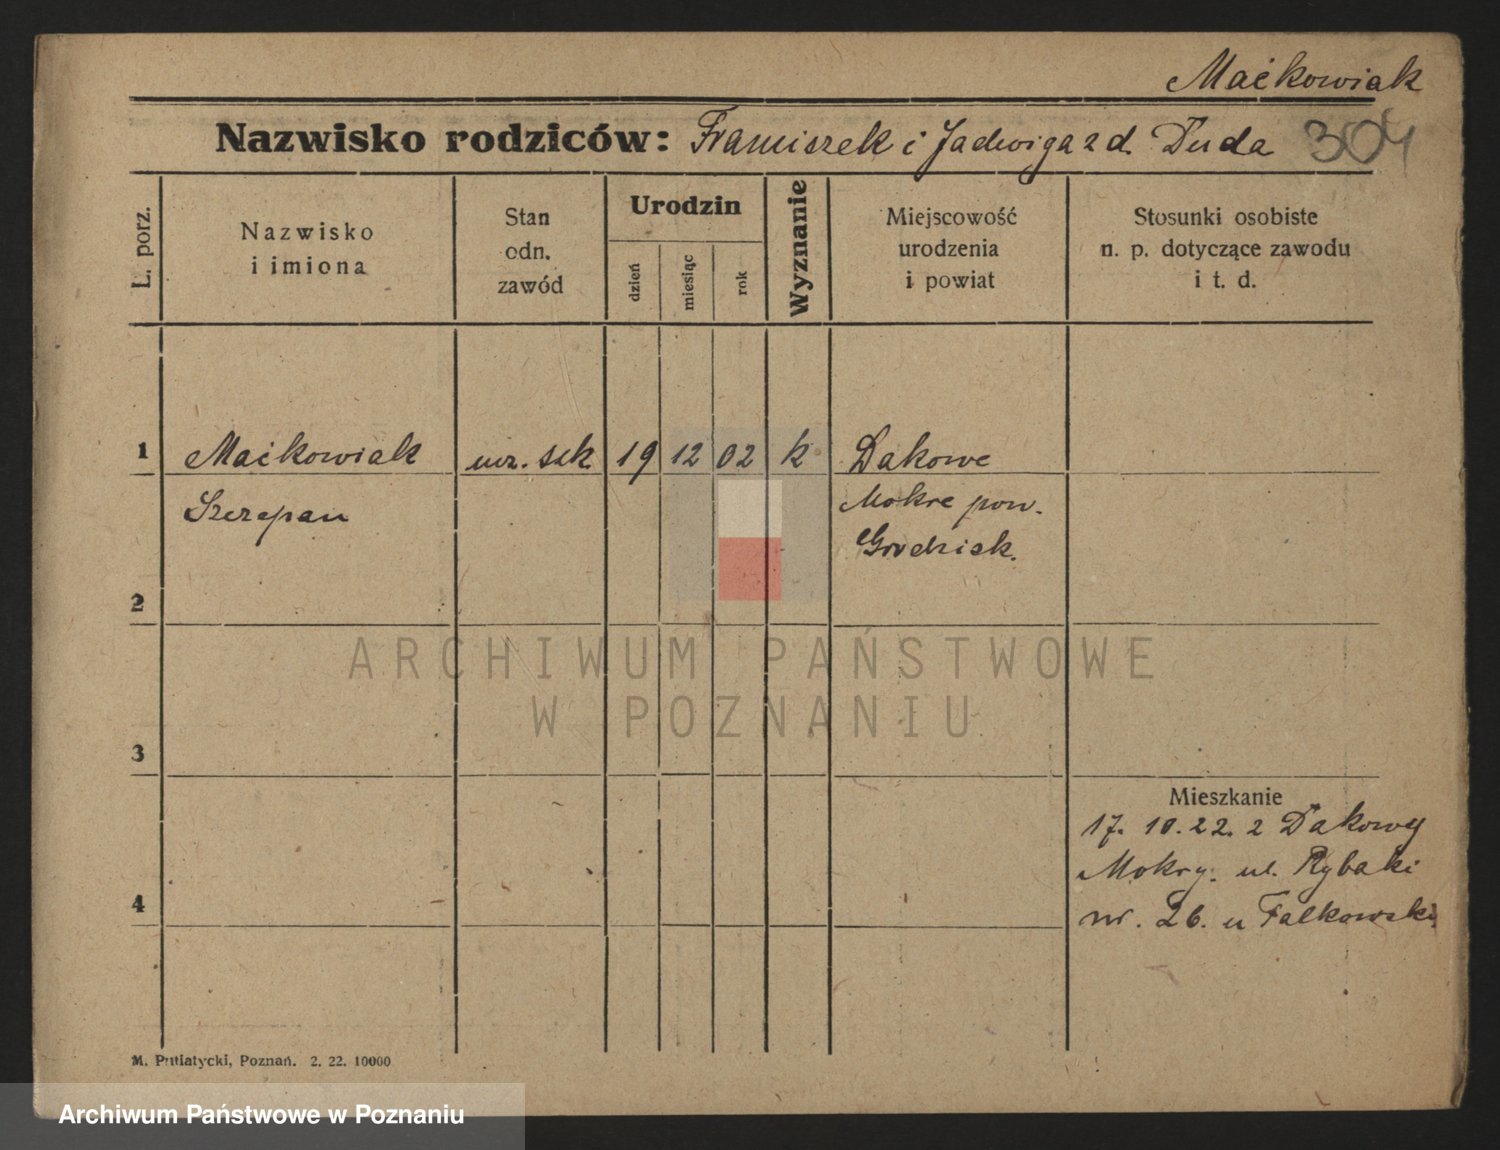 Maćkowiak
Nazwisko rodziców: Franciszek i Jadwiga z d. Duda 304
L. porz.
Nazwisko
i imiona
Stan
odn.
zawód
Urodzin
dzień
miesiąc
rok
Wyznanie
Miejscowość
urodzenia
i powiat
Stosunki osobiste
n. p. dotyczące zawodu
i t. d.
1 Maćkowiak ucz. szk 19 12 02 k Dakowe
Szczepan Mokre pow.
Grodzisk.
2
ARCHIWUM PAŃSTWOWE
W POZNANIU
3
Mieszkanie
17. 10. 22. z Dakowy
Mokry. ul. Rybaki
4 nr. 26. u Falkowski
M. Putiatycki, Poznań. 2. 22. 10000
Archiwum Państwowe w Poznaniu